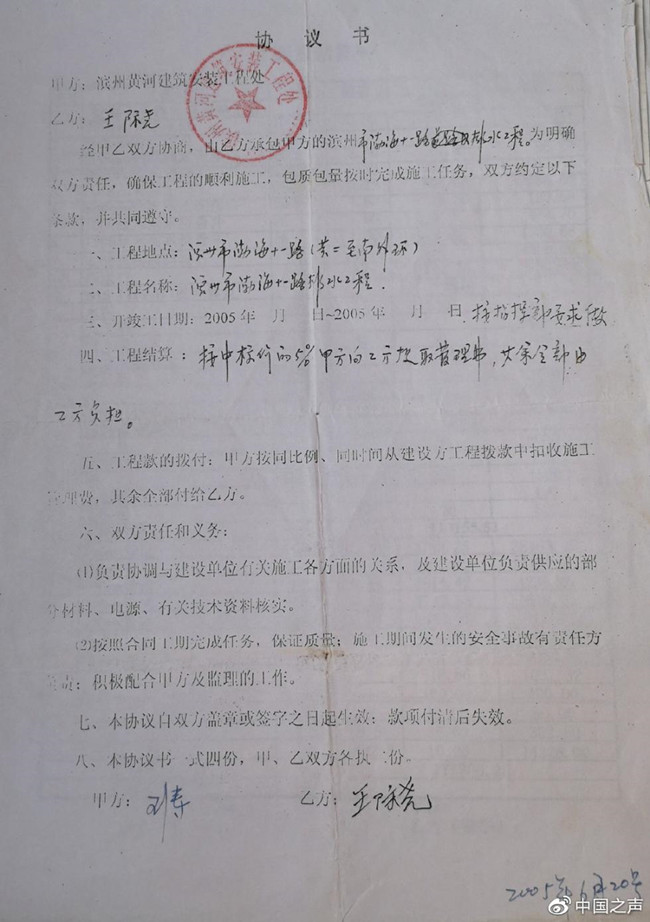 协 议 书
甲方：滨州黄河建筑安装工程处
乙方：王际尧
经甲乙双方协商，由乙方承包甲方的滨州市渤海十一路 排水工程。为明确
双方责任，确保工程的顺利施工，包质包量按时完成施工任务，双方约定以下
条款，并共同遵守。
一、工程地点：滨州市渤海十一路（黄二至南外环）
二、工程名称：滨州市渤海十一路排水工程.
三、开竣工日期：2005年 月 日~2005年 月 日.按指挥部要求做
四、工程结算：按中标价的5%甲方向乙方提取管理费，其余全部由
乙方负担。
五、工程款的拨付：甲方按同比例、同时间从建设方工程拨款中扣收施工
管理费，其余全部付给乙方。
六、双方责任和义务：
⑴负责协调与建设单位有关施工各方面的关系，及建设单位负责供应的部
分材料、电源、有关技术资料核实。
⑵按照合同工期完成任务，保证质量；施工期间发生的安全事故有责任方
负责；积极配合甲方及监理的工作。
七、本协议自双方盖章或签字之日起生效；款项付清后失效。
八、本协议书一式四份，甲、乙双方各执二份。
甲方：刘 乙方：王际尧
2005年6月20号
@中国之声